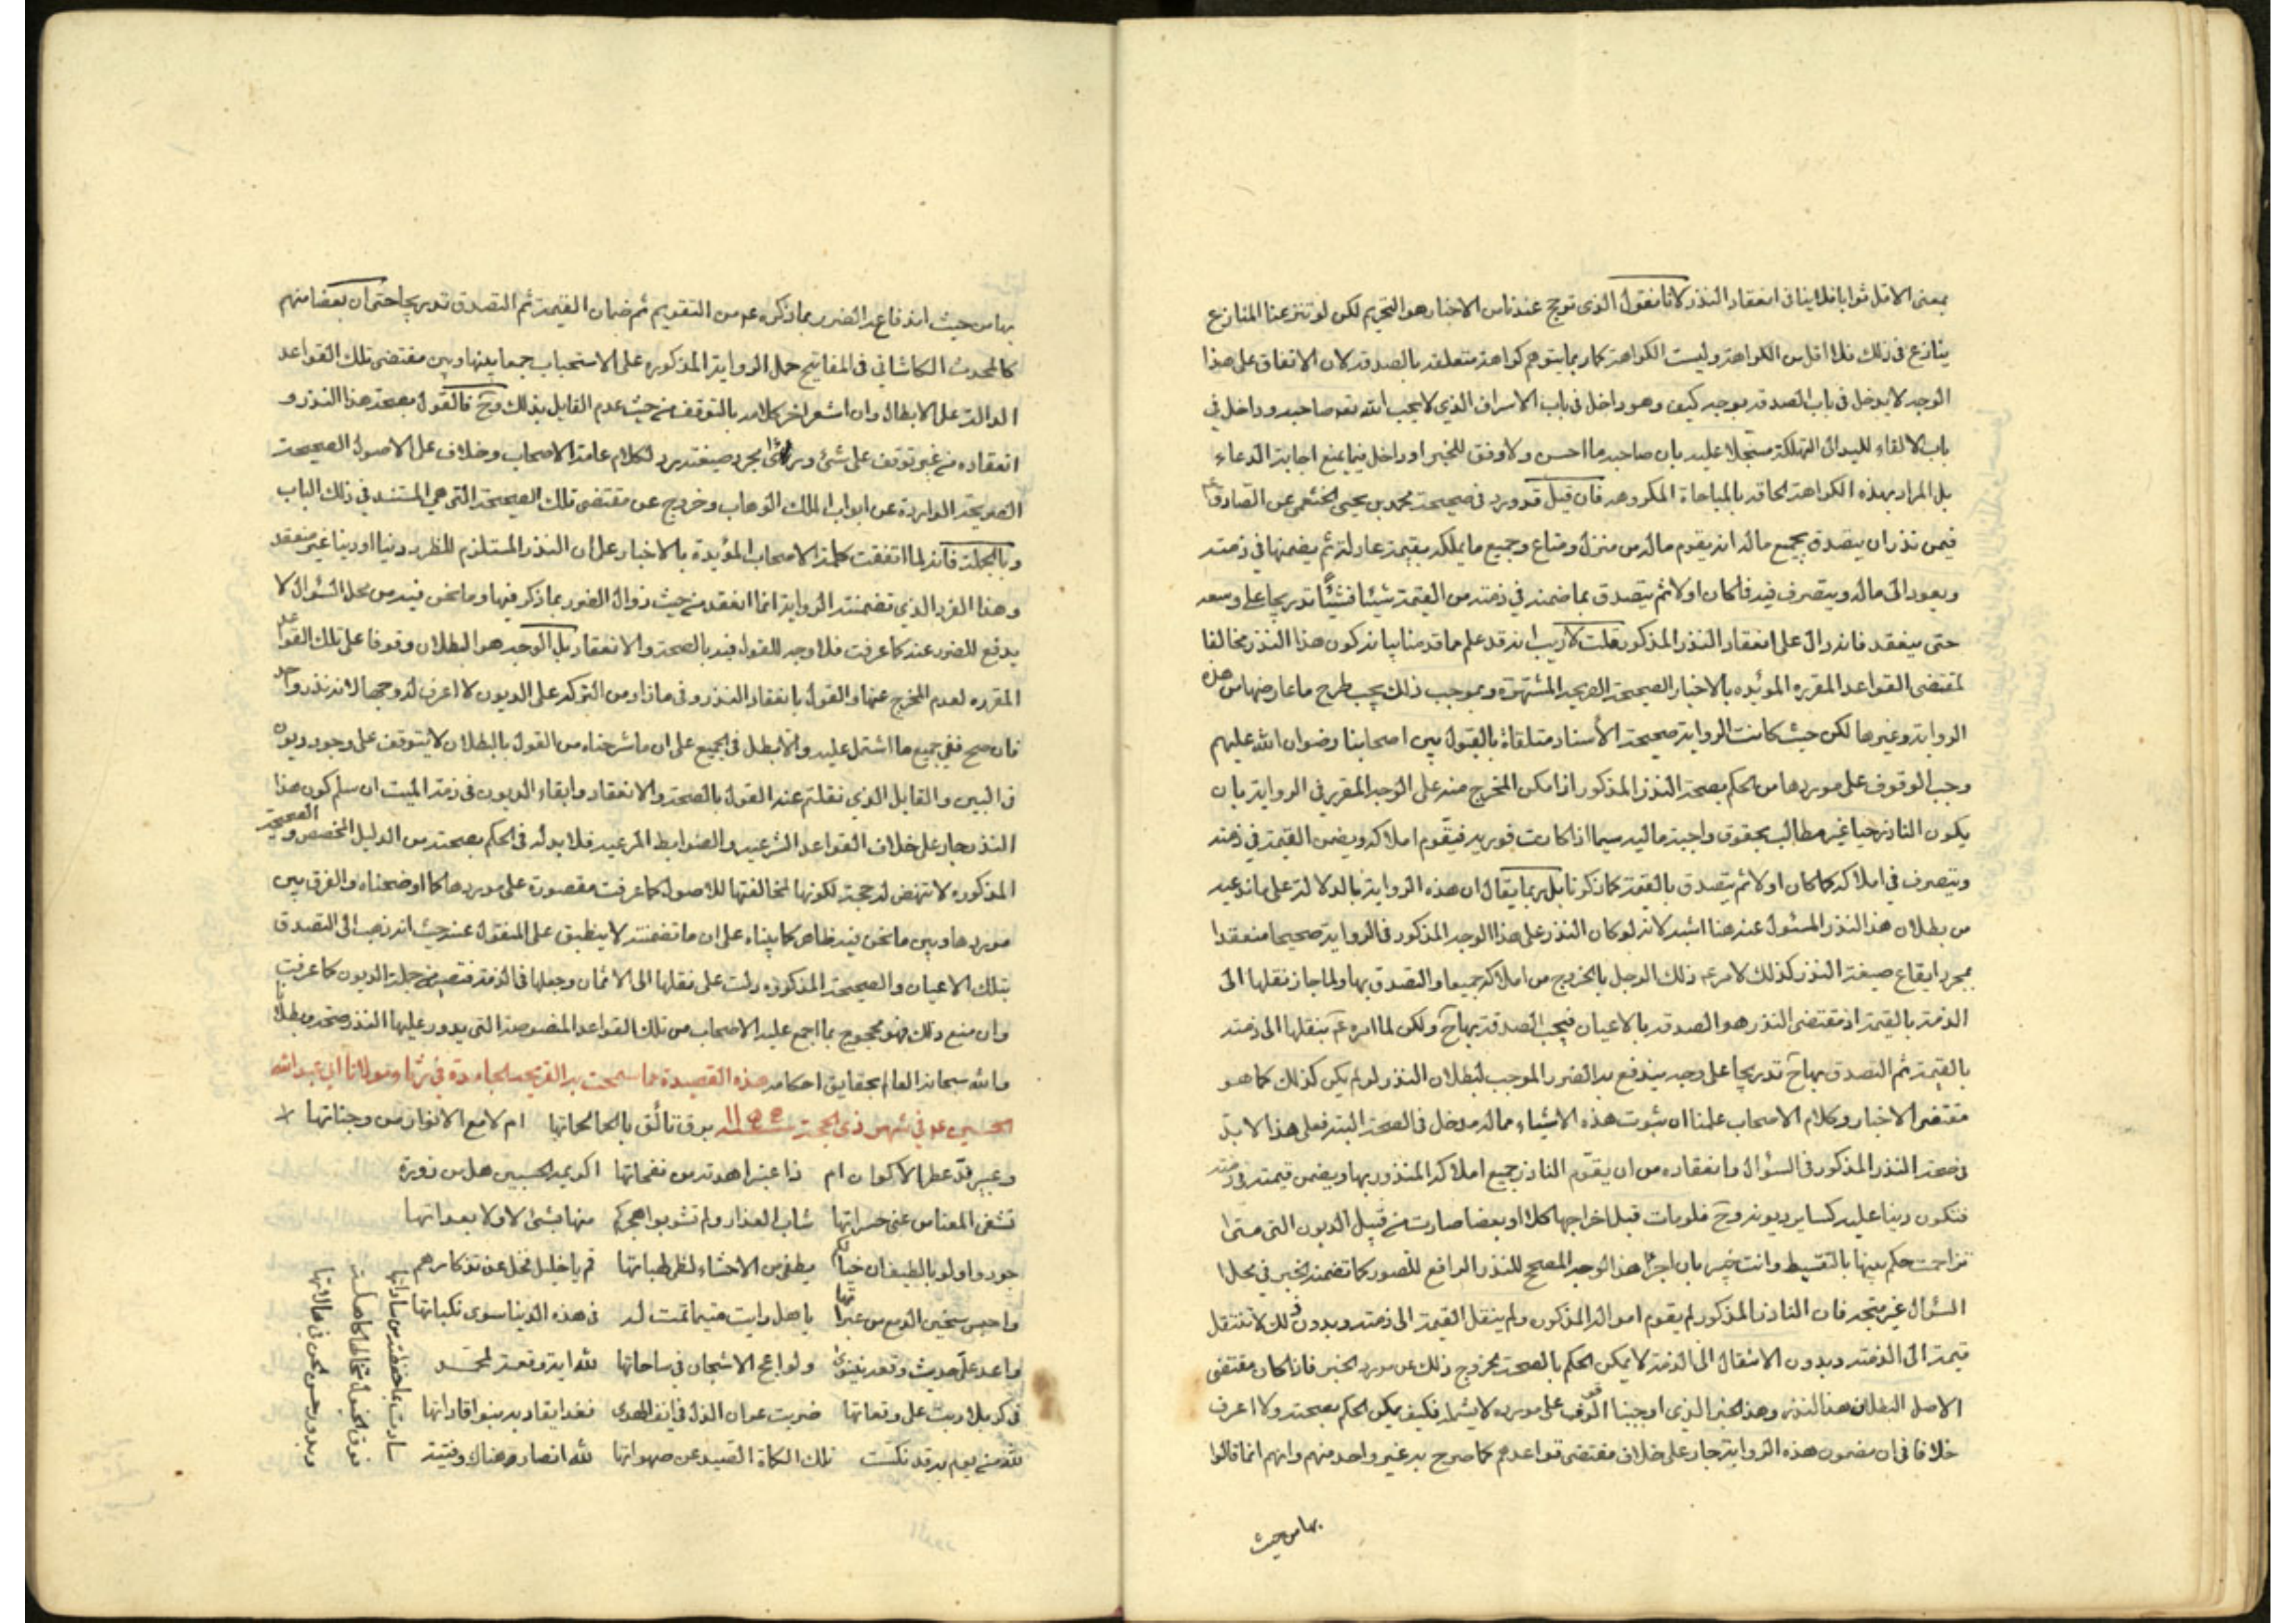 بمعنى الاقل ثوابا فلا ينافى انعقاد النذر لانا نقول الذى ترجح عندنا من الاخبار هو التحريم لكن لو تنزعنا المنازع
ينازع فى ذلك فلا اقل من الكراهة وليست الكراهة كما ربما يتوهم كراهة متعلقة بالصدقة لان الاتفاق على هذا
الوجه لا يدخل فى باب الصدقة بوجه كيف وهو داخل فى باب الاسراف الذي لا يحب الله تعه صاحبه وداخل في
باب الالقاء لليد الى التهلكة مسجلا عليه بان صاحبه ما احسن ولا وفق للخير او داخل فيما يمنع اجابة الدعاء
بل المراد بهذه الكراهة الحاقه بالمباحاة المكروهه فان قيل قد ورد فى صحيحة محمد بن يحيى الخثعمى عن الصادق ع
فيمن نذر ان يتصدق بجميع ماله انه يقوم ماله من منزل ومتاع وجميع ما يملكه بقيمة عادلة ثم يضمنها في ذمته
ويعود الى ماله ويتصرف فيه فا كما كان اولا ثم يتصدق بما ضمنه في ذمته من القيمة شيئا فشيئا تدريجا على وسعه
حتى ينفقد فانه دال على انعقاد النذر المذكور قلت لا ريب انه قد علم مما قدمنا بيانه كون هذا النذر مخالفا
لمقتضى القواعد المقرره المؤيده بالاخبار الصحيحة الصريحه المشتهرة وبموجب ذلك يجب طرح ما عارضها من هذه
الرواية وغيرها لكن حيث كانت الرواية صحيحة الأسناد متلقاة بالقبول بين اصحابنا رضوان الله عليهم
وجب الوقوف على موردها من الحكم بصحة النذر المذكور اذا مكن المخرج منه على الوجه المقرر في الرواية بان
يكون الناذر حيا غير مطالب بحقوق واجبة ماليه سيما اذا كانت فوريه فيقوم املاكه ويضمن القيمة في ذمته
ويتصرف في املاكه كما كان اولا ثم يتصدق بالقيمة كما ذكرنا بل ربما يقال ان هذه الرواية بالدلالة على ما ندعيه
من بطلان هذا النذر المسئول عنه هنا اشبه لانه لو كان النذر على هذا الوجه المذكور في الرواية صحيحا منعقدا
بمجرد ايقاع صيغة النذر كذلك لامره ذلك الرجل بالخروج من املاكه جميعا والتصدق بها ولما جاز نقلها الى
الذمة بالقيمة اذ مقتضى النذر هو الصدقة بالاعيان فيجب الصدقة بها ح ولكن لما امره ع بنقلها الى ذمته
بالقيمة ثم التصدق بها ح تدريجا على وجه يندفع به الضرر الموجب لبطلان النذر لو لم يكن كذلك كما هو
مقتضى الاخبار وكلام الاصحاب علمنا ان ثبوت هذه الاشياء مما له مدخل في الصحة البتة فعلى هذا لا بد
فى صحة النذر المذكور في السؤال وانعقاده من ان يقوم الناذر جميع املاكه المنذور بها ويضمن قيمته في ذمته
فتكون دينا عليه كساير ديونه وح فلو مات قبل اخراجها كلا او بعضا صارت من قبيل الديون التى متى
تزاحمت حكم بينها بالتقسيط وانت خبير بان اجراء هذا الوجه المصحح للنذر الرافع للضرر كما تضمنه الخبر في محل
السؤال غير متجه فان الناذر المذكور لم يقوم امواله المذكورة ولم ينقل القيمة الى ذمته وبدون ذلك لا تنتقل
قيمة الى الذمة وبدون الانتقال الى الذمة لا يمكن الحكم بالصحة لخروج ذلك عن مورد الخبر فاذا كان مقتضى
الاصل البطلان هذا النذر وهذا الخبر الذي اوجبنا الوقوف على مورده لا يشمله فكيف يمكن الحكم بصحته ولا اعرف
خلافا في ان مضمون هذه الرواية جار على خلاف مقتضى قواعدهم كما صرح به غير واحد منهم وانهم انما قالوا
بها من حيث
بها من حيث اندفاع الضرر بما ذكره ع من التقويم ثم ضمان القيمة ثم التصدق تدريجا حتى ان بعضا منهم
كالمحدث الكاشاني فى المفاتيح حمل الرواية المذكوره على الاستحباب جمعا بينها وبين مقتضى تلك القواعد
الدالة على الابطال وان اشعر اخر كلامه بالتوقف من حيث عدم القايل بذلك وح فالقول بصحة هذا النذر و
انعقاده من غير توقف على شئ وراء مجرد صيغته يرد لكلام عامة الاصحاب وخلاف على الاصول الصحيحة
الصريحة الواردة عن ابواب الملك الوهاب وخروج عن مقتضى تلك الصحيحة التى هي المستند في ذلك الباب
وبالجملة فانه لما اتفقت كلمة الاصحاب المؤيدة بالاخبار على ان النذر المستلزم للضرر دنيا او دينا غير منعقد
وهذا الفرد الذي تضمنته الرواية انما انعقد من حيث زوال الضرر بما ذكر فيها وما نحن فيه من محل السؤال لا
يدفع للضرر عنه كما عرفت فلا وجه للقول فيه بالصحة والانعقاد بل الوجه هو البطلان وقوفا على تلك القواعد
المقرره لعدم المخرج عنها والقول بانعقاد النذر وفى ما زاد من التركه على الديون لا اعرف له وجها لانه نذر واحد
فان صح ففي جميع ما اشتمل عليه والا بطل فى الجميع على ان ما شرحناه من القول بالبطلان لا يتوقف على وجود ديون
فى البين والقايل الذي نقلتم عنه القول بالصحة والانعقاد وابقاء الديون فى ذمة الميت ان سلم كون هذا
النذر جار على خلاف القواعد الشرعيه والضوابط المرعيه فلا بد له في الحكم بصحته من الدليل المخصص والصحيحة
المذكوره لا تنهض له حجة لكونها لمخالفتها للاصول كما عرفت مقصورة على موردها كما اوضحناه والفرق بين
موردها وبين ما نحن فيه ظاهر كما بيناه على ان ما تضمنته لا ينطبق على المنقول عنه حيث انه ذهب الى التصدق
بتلك الاعيان والصحيحة المذكوره دلت على نقلها الى الاثمان وجعلها في الذمة فتصير من جملة الديون كما عرفت
وان منع ذلك فهو محجوج بما اجمع عليه الاصحاب من تلك القواعد المنصوصة التى يدور عليها النذر صحة وبطلانا
والله سبحانه العالم بحقايق احكامه هذه القصيدة مما سمحت به القريحه الجامدة في رثاء مولانا ابي عبد الله
الحسين ع في شهر ذى الحجة سنة ١١٥٥ برق تألق بالحما لحماتها ام لامع الانوار من وجناتها
وعبير ند عطر الاكوان ام ذا عنبر اهدته من نفحاتها اكريمة الحسبين هل من زورة
تشفى المعنا من عنى حسراتها شاب العذار ولم تشوبوا هجركم منها بشئ لا ولا بعداتها
جودوا ولو بالطيف ان خيالكم يطفى من الاحشاء لظى لهباتها قم يا خليل فخل عن تذكارهم
واحبس سخين الدمع من عبراتها يا هل رايت متيما تمت له فى هذه الدنيا سوى نكباتها
واعد على حديث وقعة نينوى ولواعج الاشجان في ساحاتها لله اية وقعة لمحمد
في كربلا اربت على وقعاتها ضربت عوان الذل في انف الهدى فغدا يقاد به بنوا قاداتها
لله من يوم به قد نكست تلك الكماة الصيد عن صهواتها لله انصار هناك وفتية
سادت بما حفظته من ساداتها
فوق الخيول تخالها كاهلة
وبدور حسن لحن في هالاتها